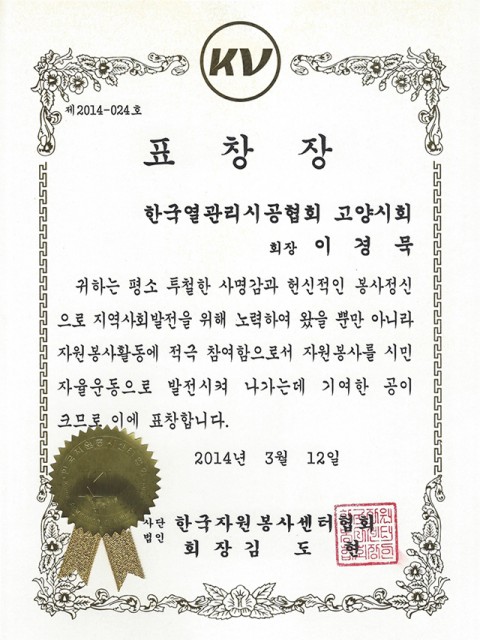 KV
제2014-024호
표 창 장
한국열관리시공협회 고양시회
회장 이 경 묵
귀하는 평소 투철한 사명감과 헌신적인 봉사정신
으로 지역사회발전을 위해 노력하여 왔을 뿐만 아니라
자원봉사활동에 적극 참여함으로서 자원봉사를 시민
자율운동으로 발전시켜 나가는데 기여한 공이
크므로 이에 표창합니다.
2014년 3월 12일
사단법인 한국자원봉사센터협회
회장 김 도 현